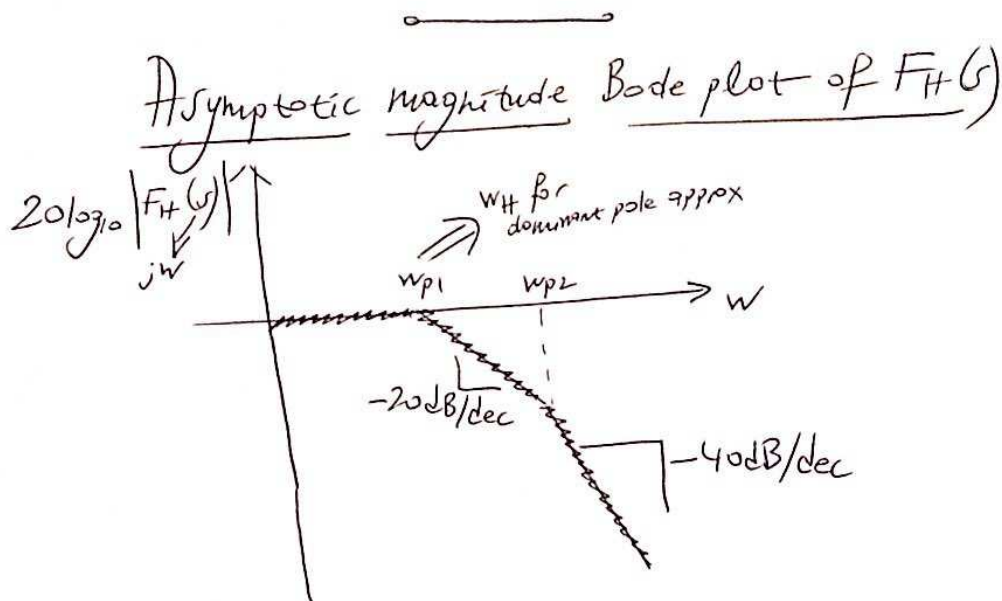 Asymptotic magnitude Bode plot of FH(s)
20log10 |FH(s)|
jw
wH for
dominant pole approx
wp1
wp2
w
-20dB/dec
-40dB/dec